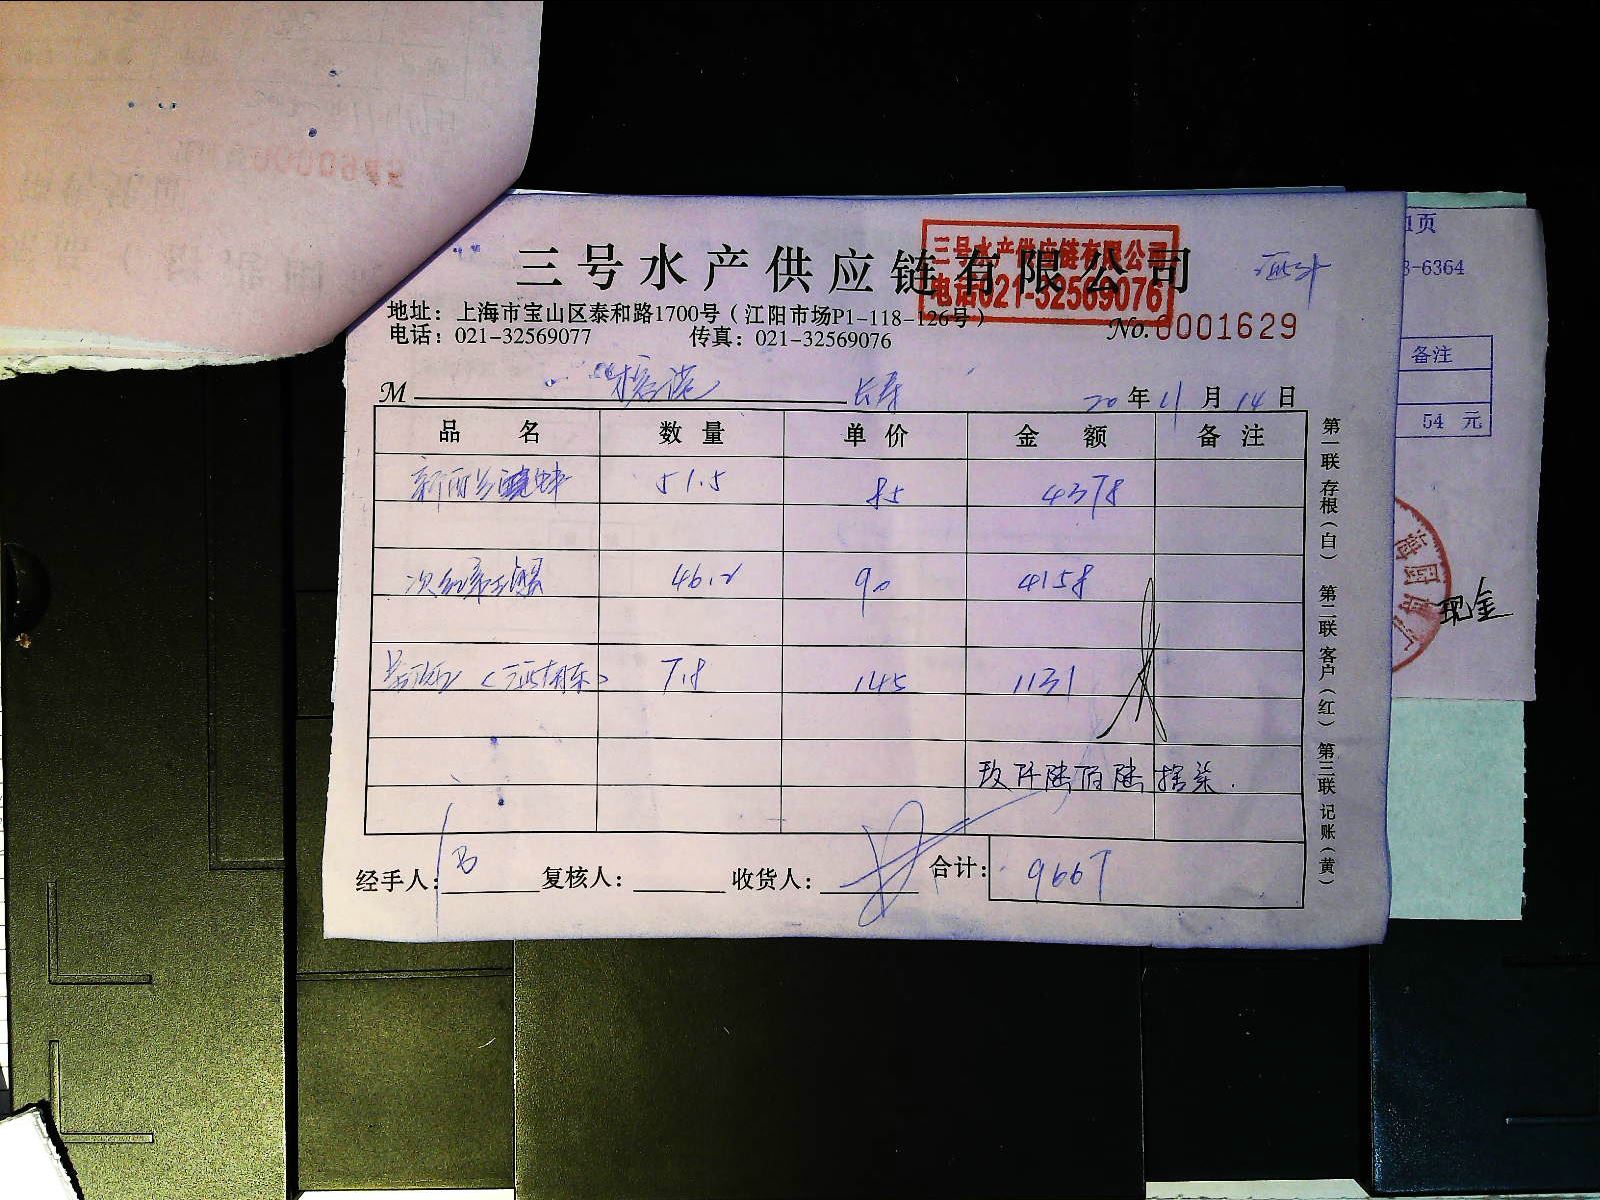 三号水产供应链有限公司
三号水产供应链有限公司
电话021-32569076
地址：上海市宝山区泰和路1700号（江阳市场P1-118-126号）
电话：021-32569077 传真：021-32569076
No. 0001629
M 长寿 20年11月14日
品名 数量 单价 金额 备注
51.5 85 4378
46.2 90 4158
7.8 145 1131
玖仟陆佰陆拾柒.
经手人： 复核人： 收货人： 合计： 9667
第一联 存根（白） 第二联 客户（红） 第三联 记账（黄）
1页
3-6364
备注
54 元
现金